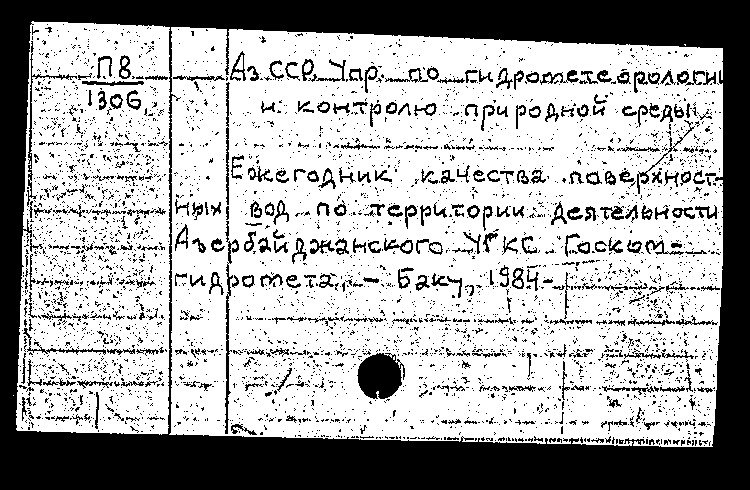 П8
1306
Аз ССР. Упр. по гидрометеорологии
и контролю природной среды
Ежегодник качества поверхност-
ных вод по территории деятельности
Азербайджанского УГКС Госком-
гидромета. – Баку, 1984-